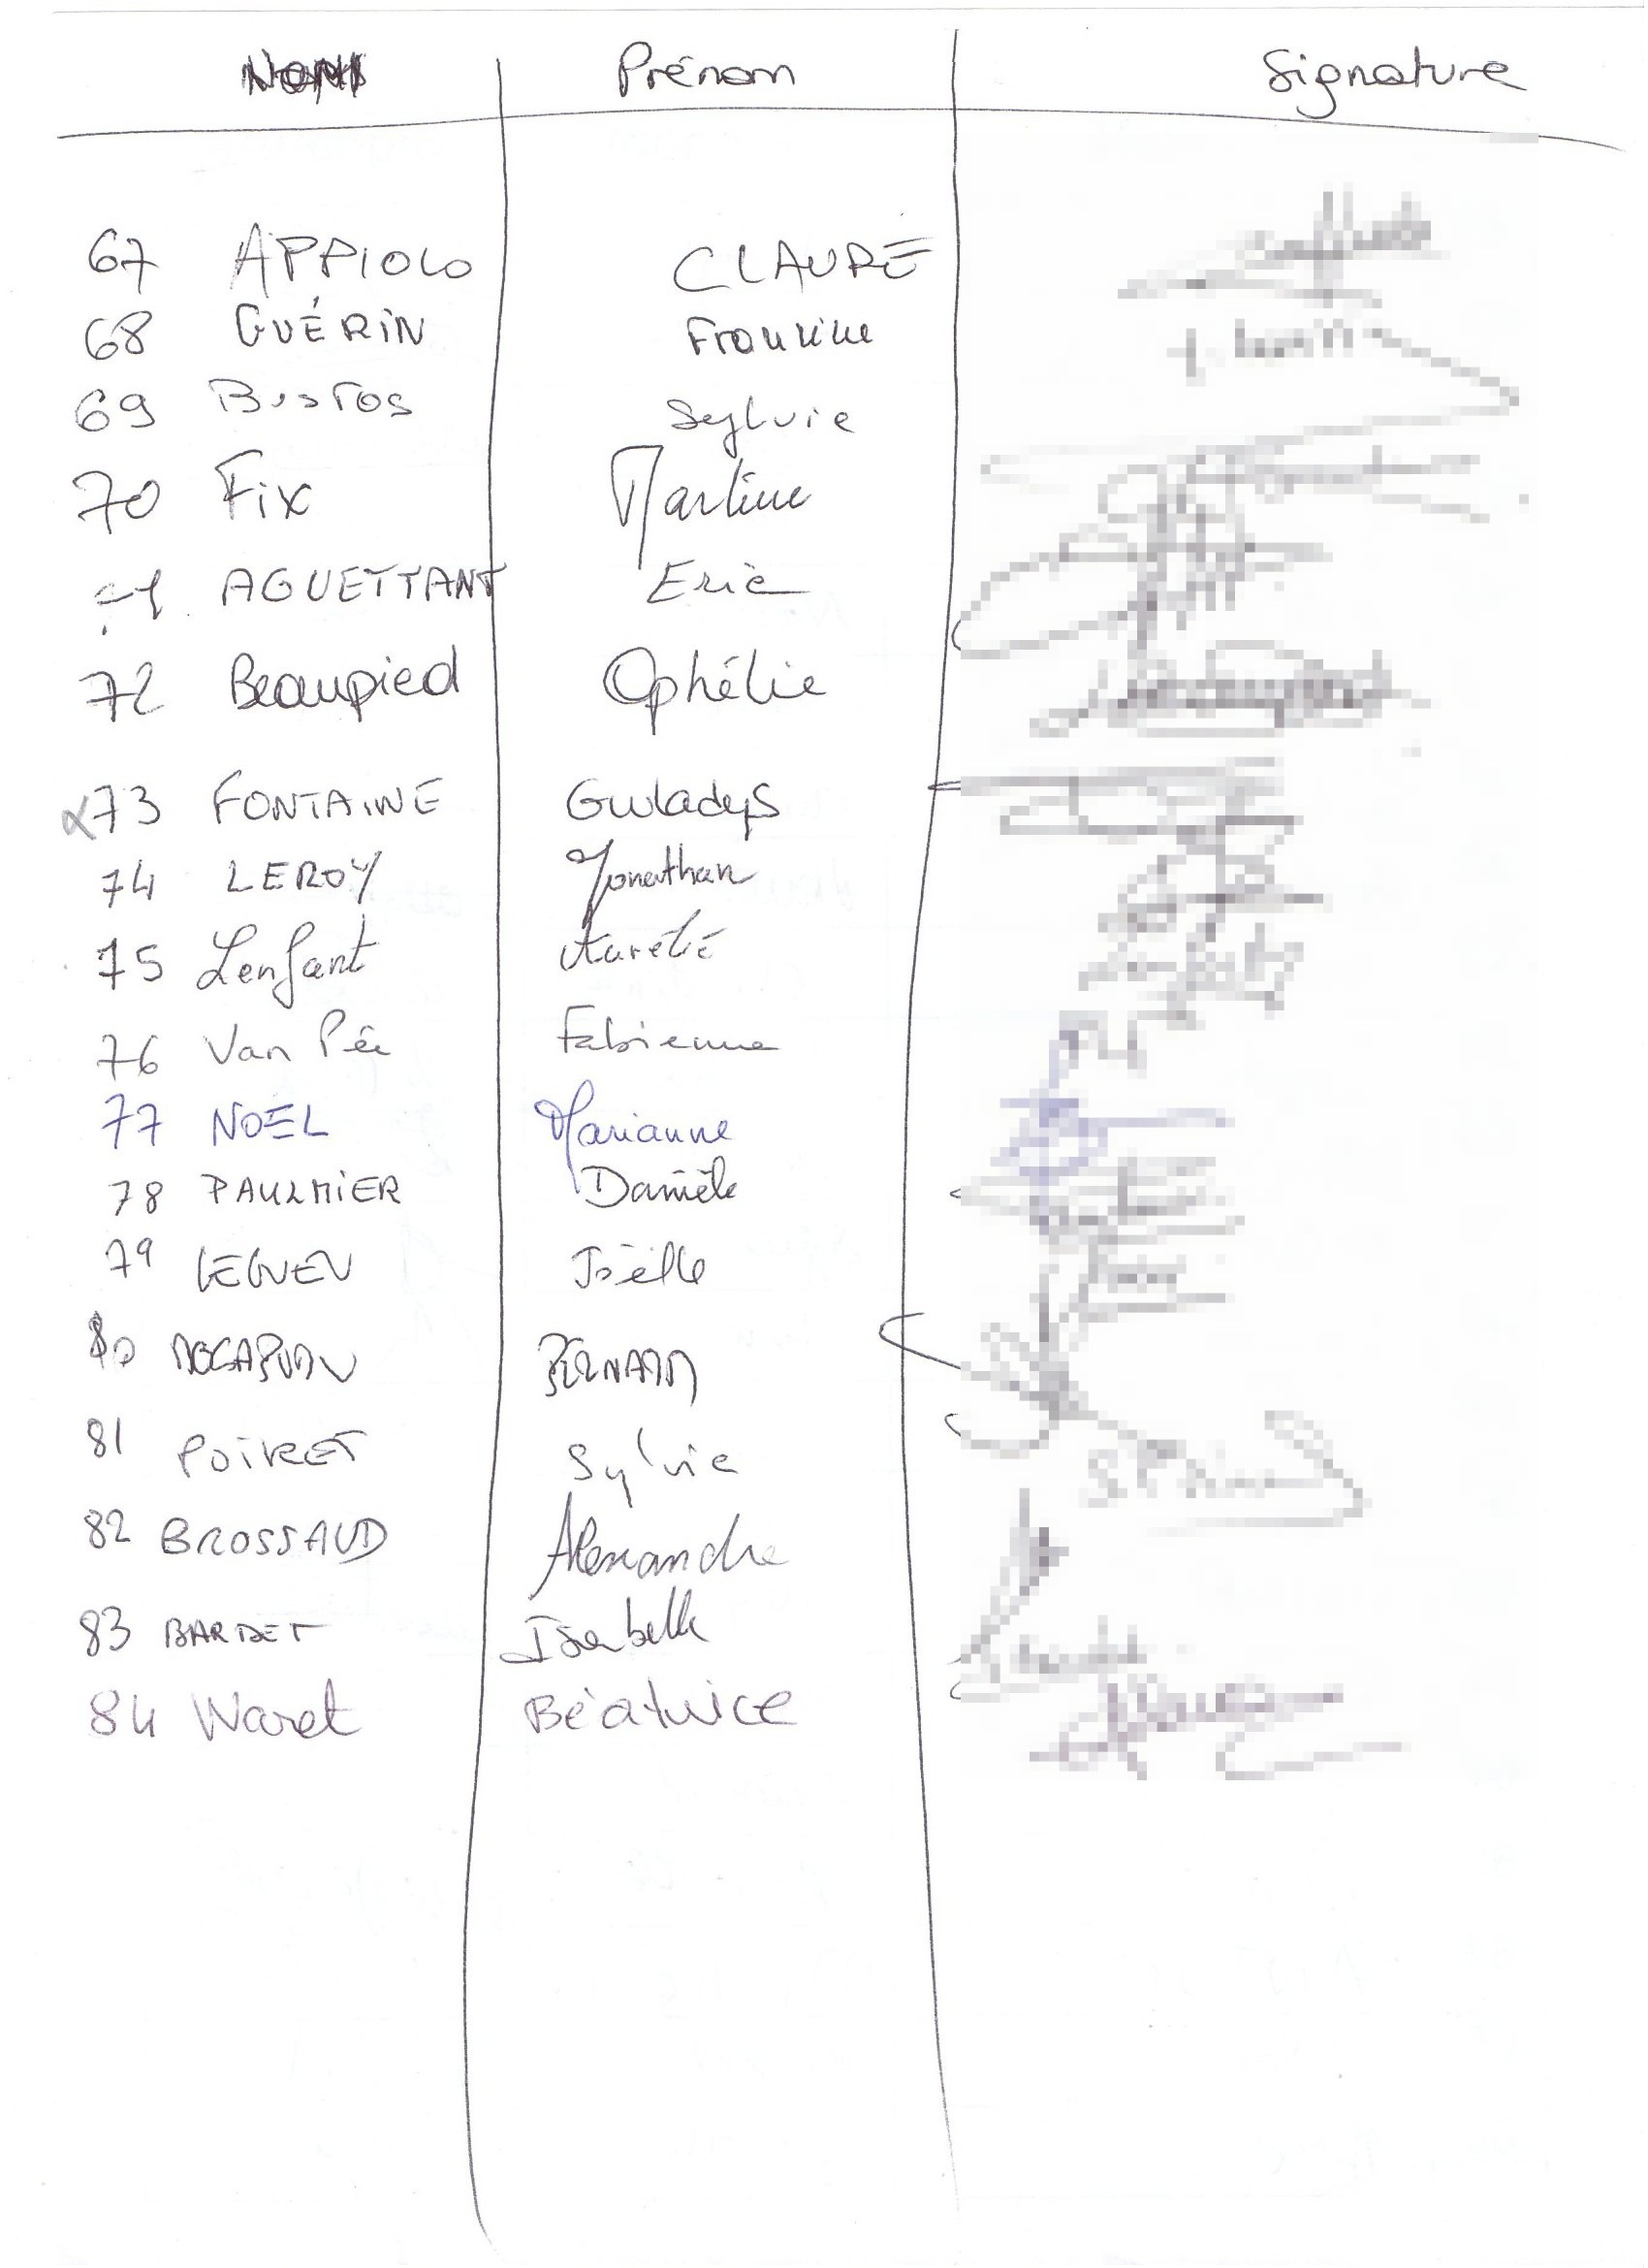 NOM Prénom Signature
67 APPIOLO CLAUDE
68 GUÉRIN Francine
69 BUSTOS Sylvie
70 Fix Martine
71 AGUETTANT Eric
72 Beaupied Ophélie
73 FONTAINE Gwladys
74 LEROY Jonathan
75 Lenfant Aurélie
76 Van Pée Fabienne
77 NOEL Marianne
78 PAULMIER Danièle
79 LEGUEN Joëlle
80
81 POIRET Sylvie
82 BROSSAUD Alexandre
83 BARDET Isabelle
84 Waret Béatrice